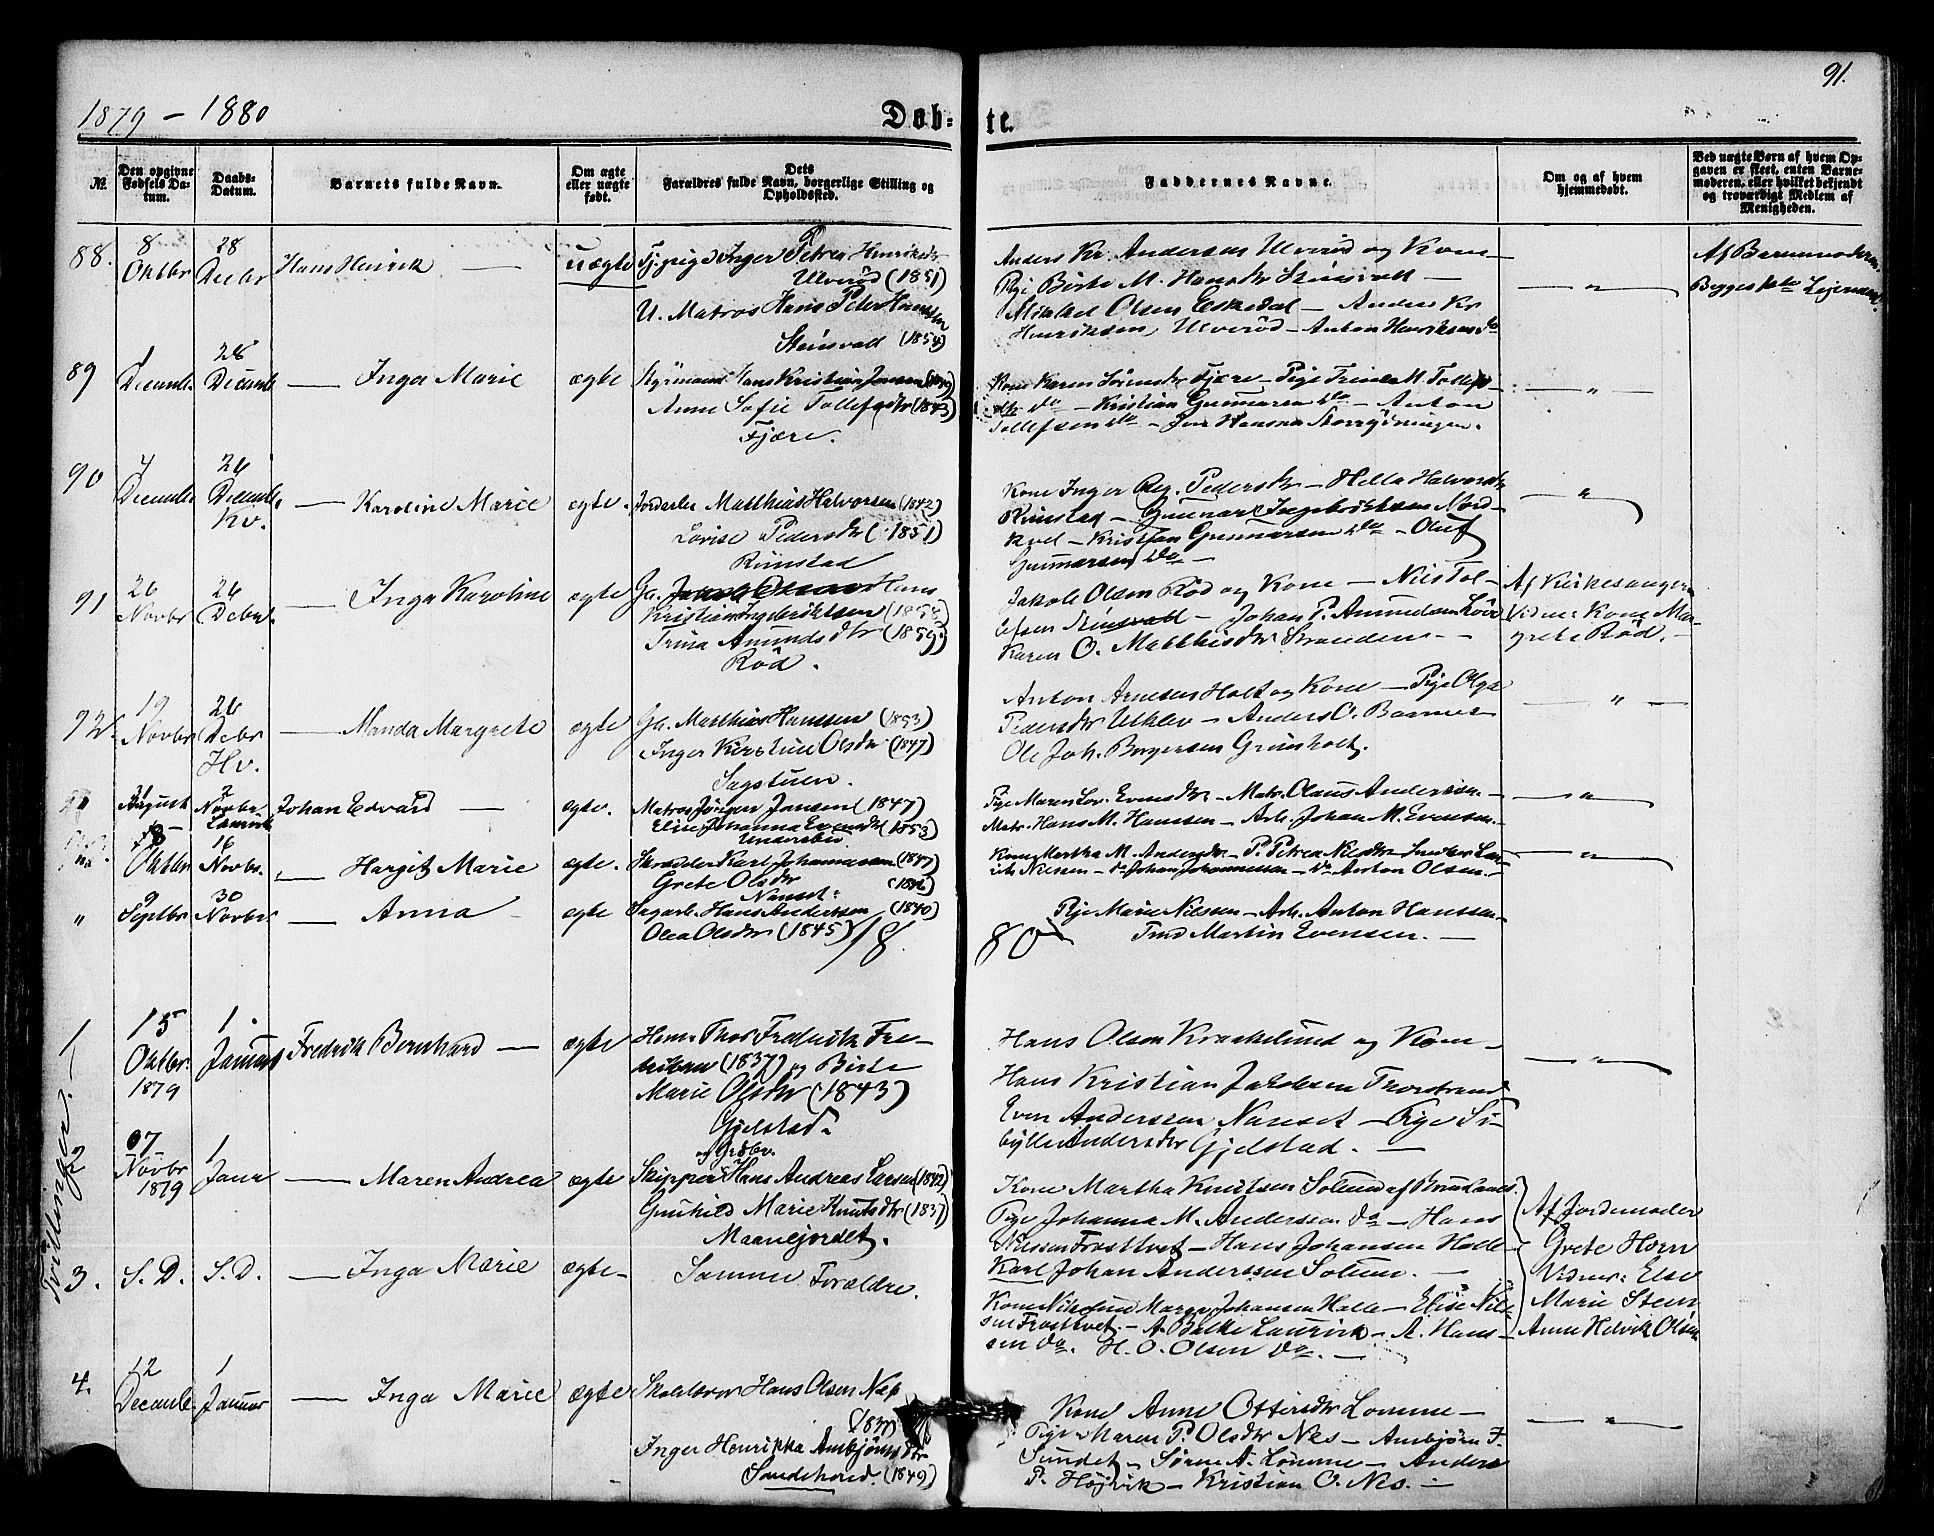 91.
1879 - 1880
Døb- te.
№.
Den opgivne Fødsels Datum.
Daabs-Datum.
Barnets fulde Navn.
Om ægte eller uægte født.
Dets Forældres fulde Navn, borgerlige Stilling og Opholdssted.
Faddernes Navne.
Om og af hvem hjemmedøbt.
Ved uægte Børn af hvem Opgaven er skeet, enten Barnemoderen, eller hvilket bekjendt og troværdigt Medlem af Menigheden.
88. 8 Oktbr 28 Decbr Hans Henrik — uægte
Tj.pige Inger Petrea Henriksdr
Ulverød (1851)
U. Matros Hans Peter Hanssen
Steinsvall (1854)
Anders Kr. Andersen Ulverød og Kone —
Pige Birte M. Hansdtr Steinsvall —
Mikkel Olsen Eskedal — Anders Kr
Henriksen, Ulverød — Anton Henriksen do
— " —
Af Barnemoderen.
Begges 1ste Leiermaal.
89 1 Decembr 26 Decembr — Inga Marie ægte
Styrmand Hans Kristian Jansen
Anne Sofie Tollefsdtr (1843)
Fjære.
Kone Karen Sørensdtr Fjære — Pige Trine M. Tollefs-
dtr do — Kristian Gunnarsen do — Anton
Tollefsen do — Hansen
— " —
90 7 Decembr 26 Decembr Kv. — Karoline Marie ægte.
Jordarb. Matthias Halvorsen (1842)
Lovise Pedersdtr (1851)
Rimstad
Kone Inger Peders dtr — Helle Halvorsdtr
Rimstad — Gunnar Ingebriktsen Nord-
kvel — Kristian Gunnarsen do — Oluf
Gunnarsen do —
— " —
91 26 Novbr 26 Debr — Inga Karoline ægte
Ga. Hans
Kristian Ingebriktsen (1854)
Trina Amunds dtr (1859)
Rød.
Jakob Olsen Rød og Kone — Nils Tol-
lefsen Steinsvall — Johan P. Amundsen
Karen O. Matthisdtr Stranden —
Af Kirkesanger
Vidne: Kone Mar-
grete Rød. —
92. 19 Novbr 26 Debr Hv. — Manda Margrete ægte
Ga. Matthias Hanssen (1853)
Inger Kirstine Olsdtr (1847)
Sagstuen.
Anton Arnesen Holt og Kone — Pige Olga
Pedersdtr Utklev — Anders O. Barnes
Ole Joh. Borgersen Grimholt.
— " —
August 2 Novbr Laurvik Johan Edvard — ægte.
Matros Jørgen Jansen (1847)
Elise Johanna Evensdtr (1853)
Pige Maren Lov. Evensdtr — Matr. Olaus Andersen —
Matr. Hans M. Hanssen — Arb. Johan M. Evensen.
— " —
18 Oktbr 16 Novbr. — Hargit Marie ægte.
Skrædder Karl Johannesen (1847)
Grete Olsdtr
Nanset.
Kone Martha M. Andersdtr — P. Petrea Nilsdtr — Snedker Lau-
rits Nilssen — do Johan Johannesen — do Anton Olsen.
— " —
" 9 Septbr 30 Novbr. — Anna ægte
Sagarb. Hans Anderssen (1840)
Olea Olsdtr (1845) 18.
80
Pige Marie Nilssen — Arb. Anton Hanssen
Martin Evensen. —
1 15 Oktbr. 1879 1. Januar Fredrik Bernhard — ægte
Hem. Thor Fredrik Fre-
(1837) og Birte
Marie Olsdtr (1843)
Gjelstad.
Hans Olsen Kraakelund og Kone —
Hans Kristian Jakobsen Thorstrand
Even Anderssen Nanset — Pige Si-
bylle Andersdtr Gjelstad. —
— " —
Tvillinger.
2 7 Novbr 1879 1 Janr — Maren Andrea ægte
og Grdbr.
Skipper Hans Andreas Larsen (1842)
Gunhild Marie Knutsdtr (1837)
Maanejordet.
Kone Martha Knutsen Solum af Brunlanes.
Pige Johanna M. Andersen do — Hans
Nilssen Frosttvet — Hans Johansen Halle —
Karl Johan Anderssen Solum. —
Af Jordemoder
Grete Horn
Vidner: Else
Marie Steen
Anne Helvik Olsen
3. S. D. S. D. — Inga Marie ægte
Samme Forældre.
Kone Nikoline Margr. Johansen Halle — Elise Nils-
sen Frosttvet. — A. Balke Laurvik — A. Hans-
sen do. H. O. Olsen do. —
4. 12 Decembr 1 Januar — Inga Marie ægte
Skolelærer Hans Olsen Næs
(1837)
Inger Henrikka Anbjørnsdtr
Sandehored. (1849)
Kone Anne Ottersdtr Lomme —
Pige Maren P. Olsdtr Nes — Anbjørn F.
Sundet — Søren A. Lomme — Anders
P. Højvik — Kristian O. Nes. —
— " —